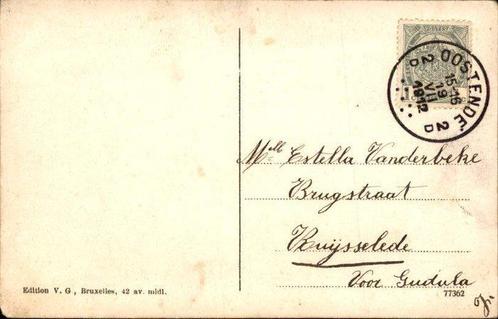 OOSTENDE
2 D
15-16
19
VII
1912
2 D
Mlle Estella Vanderbeke
Brugstraat
Ruijsselede
Voor Gudula
Edition V. G., Bruxelles, 42 av. midi.
77362